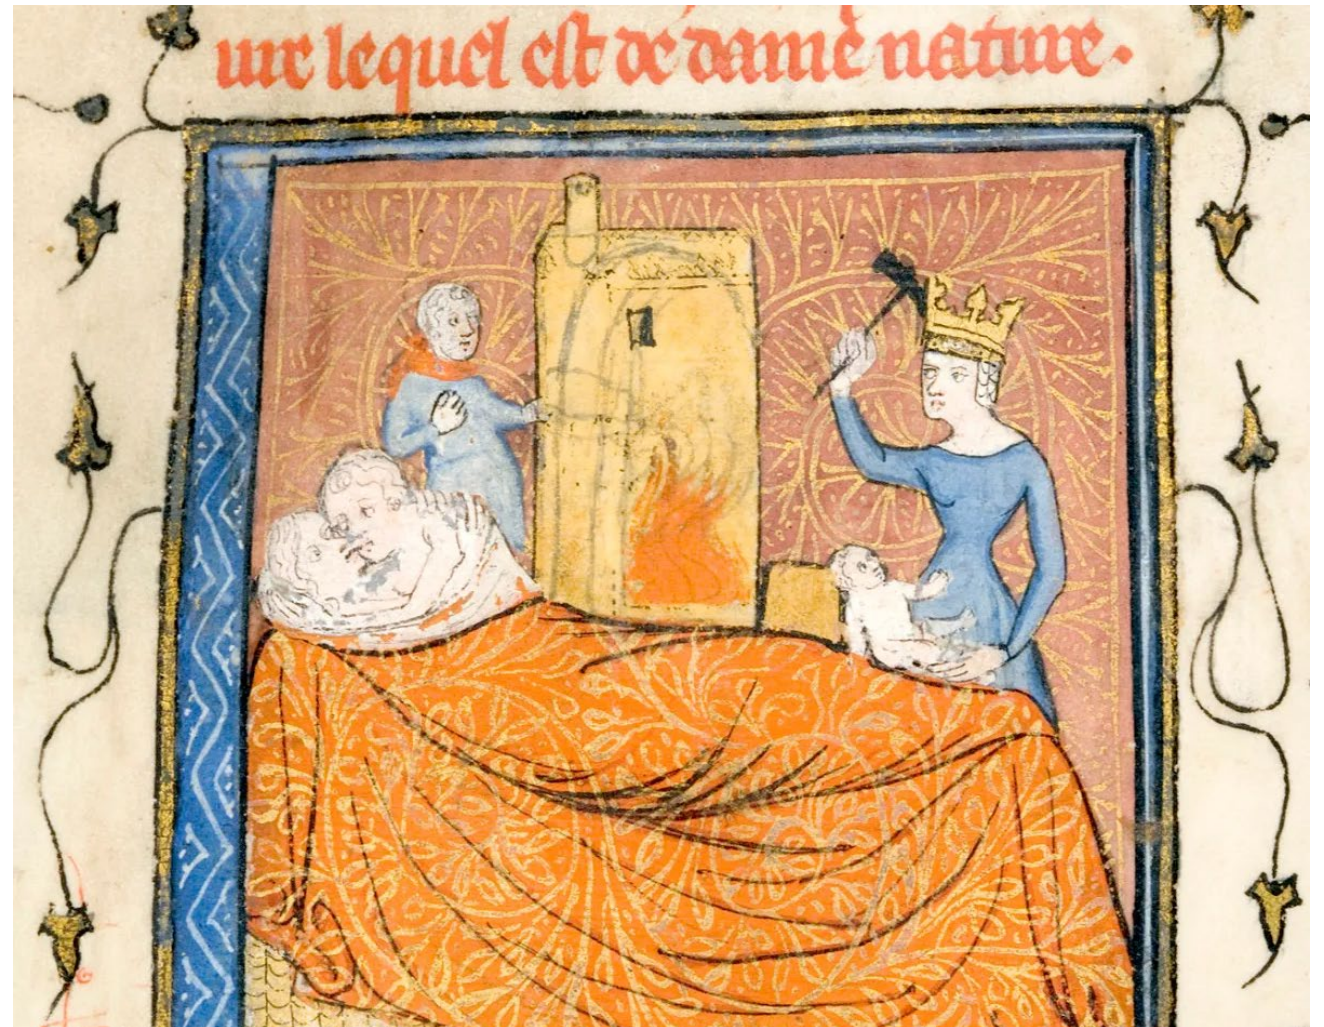 ure lequel est de dame nature.